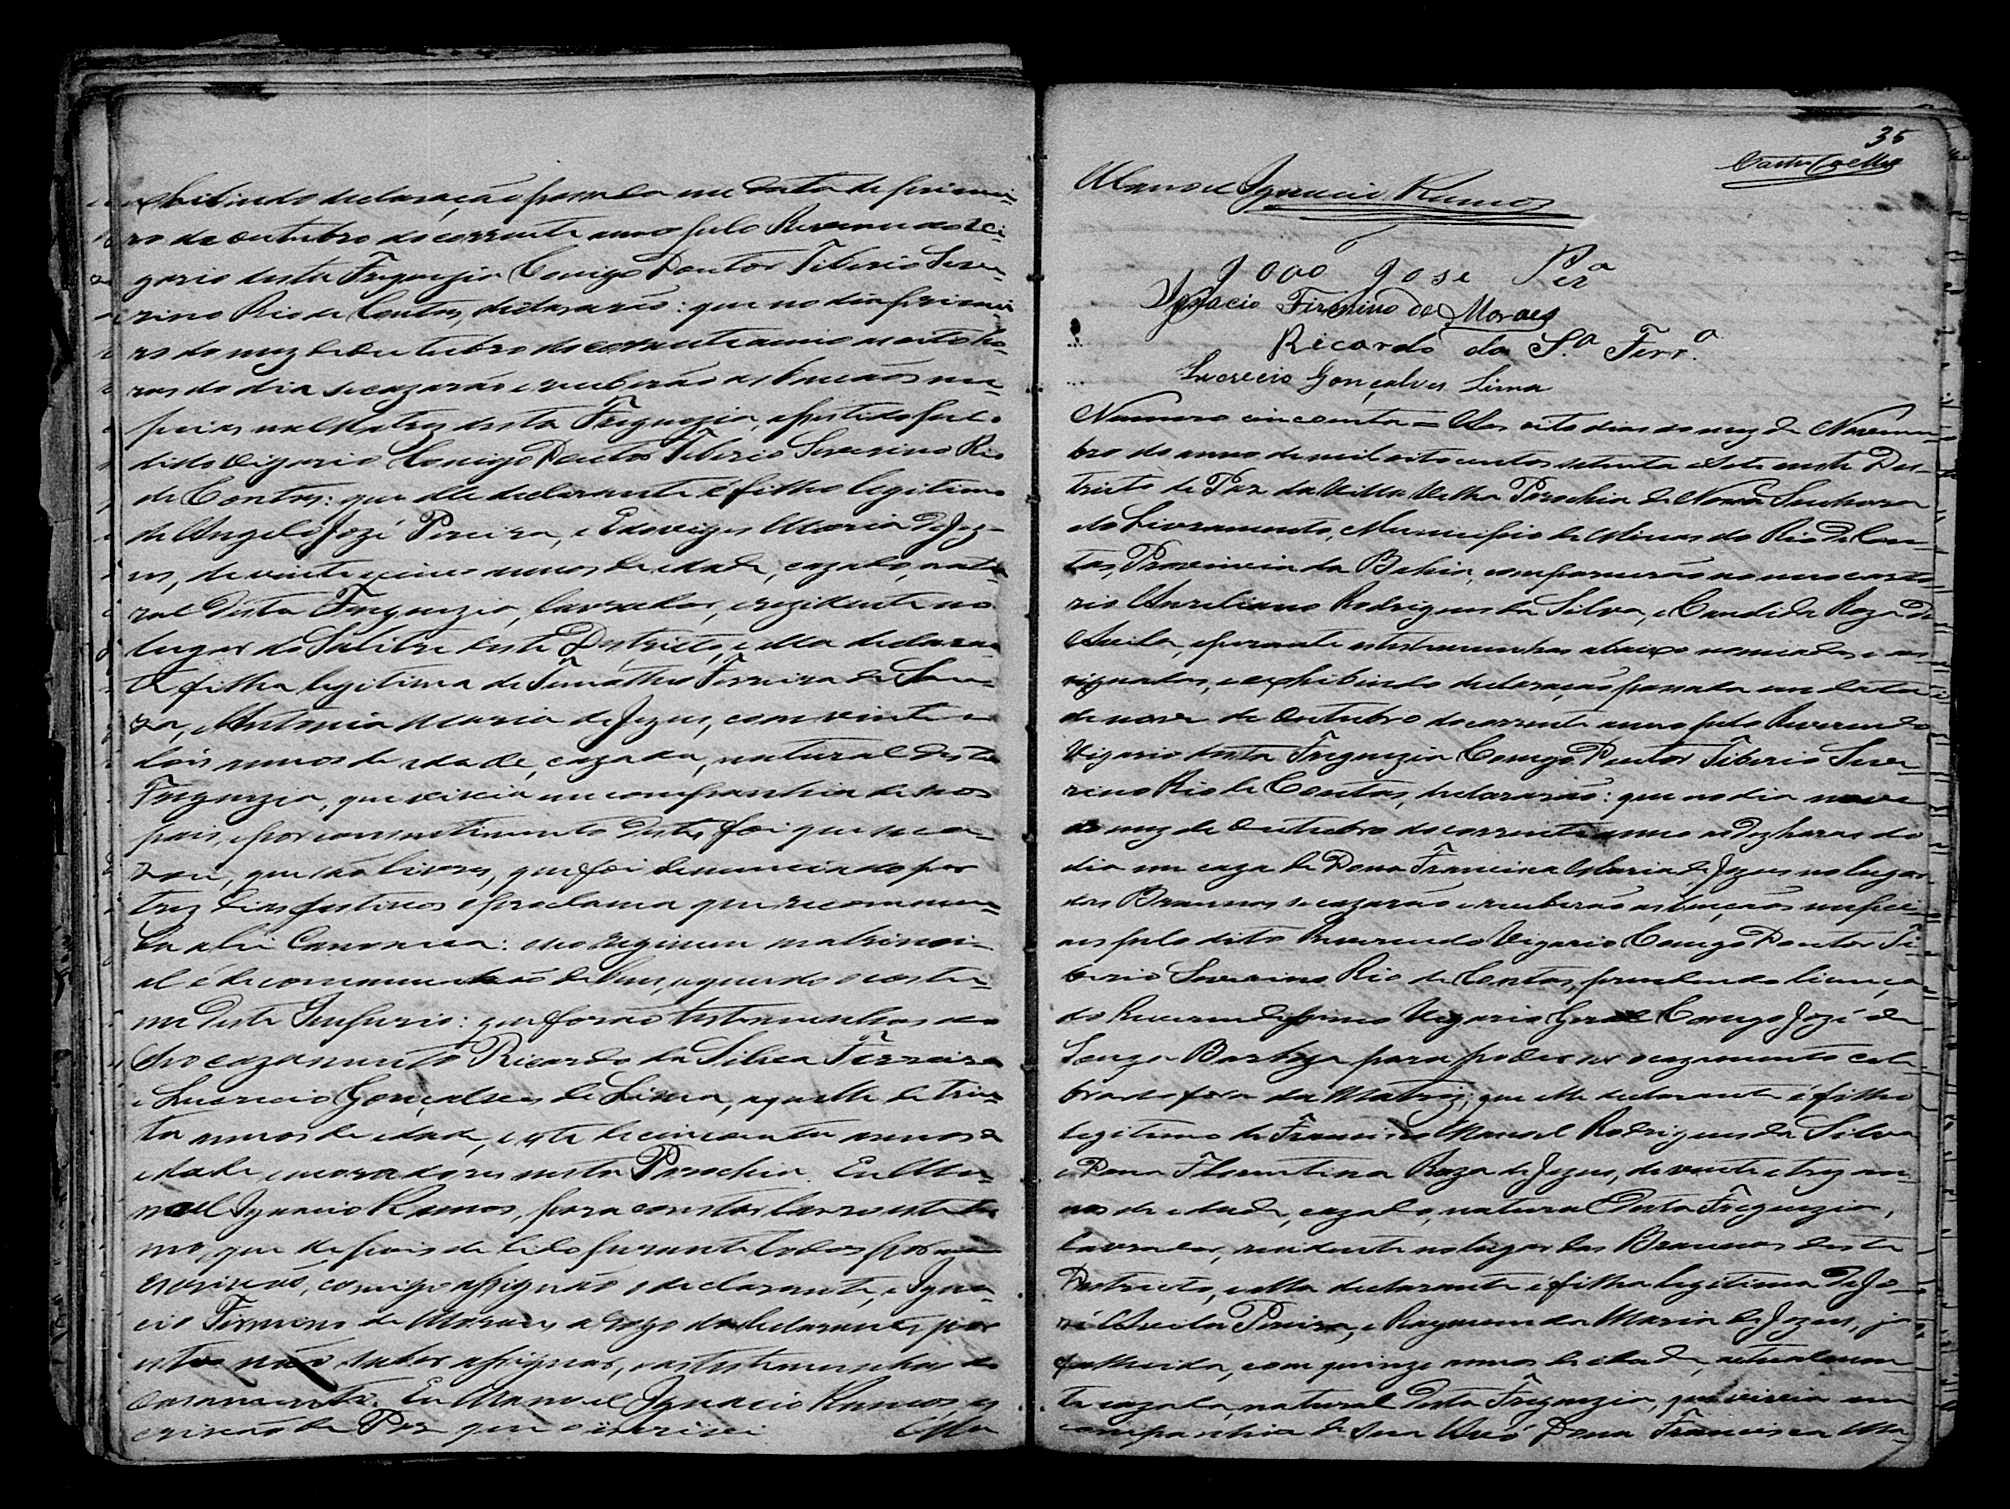 exhibindo declaração passada em data de primei-
ro de Outubro do corrente anno pelo Reverendo Vi-
gario desta Freguezia Conigo Doutor Tiberio Seve-
rino Rio de Contas, declararaõ: que no dia primei-
ro do mez de Outubro do corrente anno as oito ho-
ras do dia se cazaraõ e receberaõ as bençaõs nu-
peiaes na Matriz desta Freguezia, assistido pelo
dito Vigario Conigo Doutor Tiberio Severino Rio
de Contas: que elle declarante é filho legitimo
de Angelo Jozé Pereira, e Edoviges Maria de Jez-
us, de vinte e cinco annos de idade, cazado, natu-
ral desta Freguezia, lavrador, e rezidente no
lugar do Salitre deste Destricto, e ella declaran-
te filha legitima de Timotheo Ferreira de Sou-
za, e Antonia Maria de Jezus, com vinte e
dois annos de idade, cazada, natural desta
Freguezia, que vivia em companhia de seos
pais, e por consentimento destes foi que se ca-
zou, que saõ livres, que foi denunciado por
trez dias festivos e proclama que recommen-
da a Lei Canonica: e no regimen matrimoni-
al é de communicaõ de bens, segundo o costu-
me deste Imperio: que foraõ testemunhas do
dito cazamento Ricardo da Silva Ferreira
e Lucrecio Gonçalves de Lima, aquelle de trin-
ta annos de idade, e este de cincoenta annos de
idade e moradores nesta Parochia. Eu Ma-
noel Ignacio Ramos, para constar lavro este ter-
mo, que depois de lido perante todos por mim
escrivaõ, comigo assignaõ o declarante, e Igna-
cio Firmino de Moraes a rogo da declarante por
esta naõ saber assignar, e as testemunhas do
casamento. Eu Manoel Ignacio Ramos es-
crivaõ de Paz que o escrevi
35
Manoel Ignacio Ramos
João Jose Per.ª
Ignacio Firmino de Moraes
Ricardo da S.ª Ferr.ª
Lucrecio Gonçalves Lima
Numero cincoenta = Aos oito dias do mez de Novem-
bro do anno de mil oito centos setenta e sete neste Des-
tricto de Paz da Villa Velha Parochia de Nossa Senhora
do Livramento, Municipio de Minas do Rio de Con-
tas, Provincia da Bahia, compareceraõ no meo carto-
rio Aureliano Rodrigues da Silva, e Candida Roza de
Avila, e perante as testemunhas abaixo nomeadas e as-
signadas, e exhibindo declaraçaõ passada em data
de nove de Outubro do corrente anno pelo Reverendo
Vigario desta Freguezia Conego Doutor Tiberio Seve-
rino Rio de Contas, declararaõ: que no dia nove
do mez de Outubro do corrente anno as dez horas do
dia em caza de Dona Francisca Maria de Jezus no lugar
das Braunas se cazaraõ e receberaõ as bençaõs nupci-
aes pelo dito Reverendo Vigario Conego Doutor Ti-
berio Severino Rio de Contas, precedendo licença
do Reverendissimo Vigario Geral Conego Jozé de
Souza Barboza para poder ser o cazamento cele-
brado fora da Matriz; que elle declarante é filho
legitimo de Francisco Manoel Rodrigues da Silva
e Dona Florentina Roza de Jezus, de vinte e trez an-
nos de idade, cazado, natural desta Freguezia,
lavrador, rezidente no lugar das Braunas deste
Destricto, e ella declarante é filha legitima de Jo-
zé Avila Pereira, e Raymunda Maria de Jezus, ja
fallecida, com quinze annos de idade, actualmen-
te cazada, natural desta Freguezia, que vivia em
companhia de sua Avó Dona Francisca Ma-